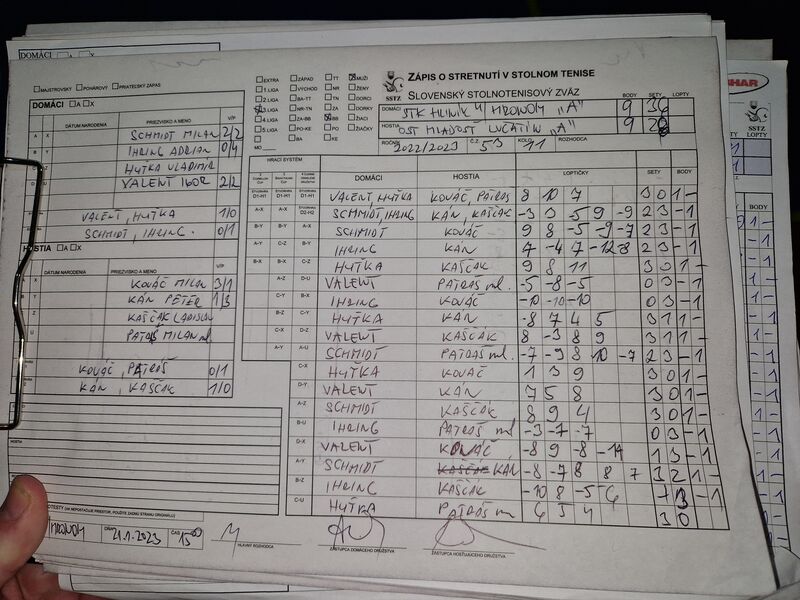 ZÁPIS O STRETNUTÍ V STOLNOM TENISE
SLOVENSKÝ STOLNOTENISOVÝ ZVÄZ
SSTZ
MAJSTROVSKÝ POHÁROVÝ PRIATEĽSKÝ ZÁPAS
EXTRA ZÁPAD TT MUŽI
1. LIGA VÝCHOD NR ŽENY
2. LIGA BA-TT TN DORCI
3. LIGA NR-TN ZA DORKY
4. LIGA ZA-BB BB ŽIACI
5. LIGA PO-KE PO
BA KE
MO
BODY SETY LOPTY
DOMÁCI STK HLINÍK N HRONOM "A" 9 36
HOSTIA OST MLADOSŤ LUČATÍN "A" 9
ROČNÍK 2022/2023 Č.Z. 53 KOLO 11 ROZHODCA
DOMÁCI A X
DÁTUM NARODENIA PRIEZVISKO A MENO V/P
A X SCHMIDT MILAN 2/2
B Y IHRING ADRIAN 0/4
HUTKA VLADIMIR
VALENT IGOR 2/2
VALENT, HUTKA 1/0
SCHMIDT, IHRING 0/1
HOSTIA A X
DÁTUM NARODENIA PRIEZVISKO A MENO V/P
KOVÁČ MILAN 3/1
KÁN PETER 1/3
KAŠČÁK LADISLAV
PATRÁŠ MILAN ml.
KOVÁČ, PATRÁŠ 0/1
KÁN, KAŠČÁK 1/0
HRACÍ SYSTÉM DOMÁCI HOSTIA LOPTIČKY SETY BODY
VALENT, HUTKA KOVÁČ, PATRÁŠ 8 10 7 3 0 1 -
A-X SCHMIDT, IHRING KÁN, KAŠČÁK -3 3 -5 9 -9 2 3 - 1
B-Y SCHMIDT KOVÁČ 9 8 -5 -9 -7 2 3 - 1
A-Y IHRING KÁN 7 -4 7 -12 -8 2 3 - 1
B-X HUTKA KAŠČÁK 9 8 11 3 0 1 -
A-Z D-U VALENT PATRÁŠ ml. -5 -8 -5 0 3 - 1
C-Y B-X IHRING KOVÁČ -10 -10 -10 0 3 - 1
B-Z C-Y HUTKA KÁN -8 7 4 5 3 1 1 -
C-X D-Z VALENT KAŠČÁK 8 -3 8 9 3 1 1 -
A-Y A-U SCHMIDT PATRÁŠ ml. -7 -9 8 10 -7 2 3 - 1
C-X HUTKA KOVÁČ 1 3 9 3 0 1 -
D-Y VALENT KÁN 7 5 8 3 0 1 -
A-Z SCHMIDT KAŠČÁK 8 9 4 3 0 1 -
B-U IHRING PATRÁŠ ml -3 -7 -7 0 3 - 1
D-X VALENT KOVÁČ -8 9 -8 -14 1 3 - 1
A-Y SCHMIDT KÁN -8 -7 8 8 7 3 2 1 -
B-Z IHRING KAŠČÁK -10 8 -5 -6 1 3 - 1
C-U HUTKA PATRÁŠ ml 6 5 4 3 0
HOSTIA
(AK NEPOSTAČUJE PRIESTOR, POUŽITE ZADNÚ STRANU ORIGINÁLU)
HRONOM DŇA 21.1.2023 ČAS 15 00
HLAVNÝ ROZHODCA
ZÁSTUPCA DOMÁCEHO DRUŽSTVA
ZÁSTUPCA HOSŤUJÚCEHO DRUŽSTVA
SSTZ
SETY LOPTY
BODY